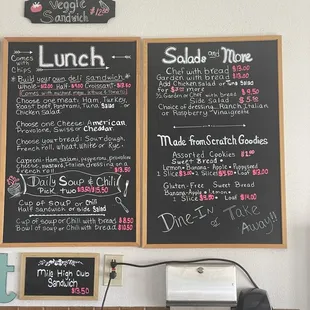 Veggie
Sandwich $12.00
Comes
with
chips
Lunch
Build your own deli sandwich
Choose one meat: Ham, Turkey,
Roast beef, Pastrami, Tuna or
Chicken Salad.
Choose one Cheese: American
Provolone, Swiss or Cheddar
Choose your bread: Sourdough,
French roll, wheat, White or Rye.
Capcom: Ham, salami, pepperoni, provolone
Cheese, mustard, Italian dressing on a
French roll $13.50
Daily Soup & Chili
Pick two
Cup of soup or Chili
Half sandwich or side Salad
Cup of soup or Chili with bread $8.50
Bowl of soup or Chili with bread $10.50
Mile High Club
Sandwich
$13.50
Salads and More
Chef with bread $13.00
Garden with bread $13.00
Add Chicken Salad or Tuna Salad
for more
Garden or Chef with bread $9.50
Side Salad
Choice of dressing, Ranch, Italian
or Raspberry Vinaigrette
Made from Scratch Goodies
Assorted Cookies
Sweet Bread
Lemon • Banana • Apple • Poppyseed
1 Slice 2 Slices Loaf
Gluten-Free Sweet Bread
Banana • Apple • Lemon
1 Slice Loaf $14.00
Dine-In or Take
Away!!